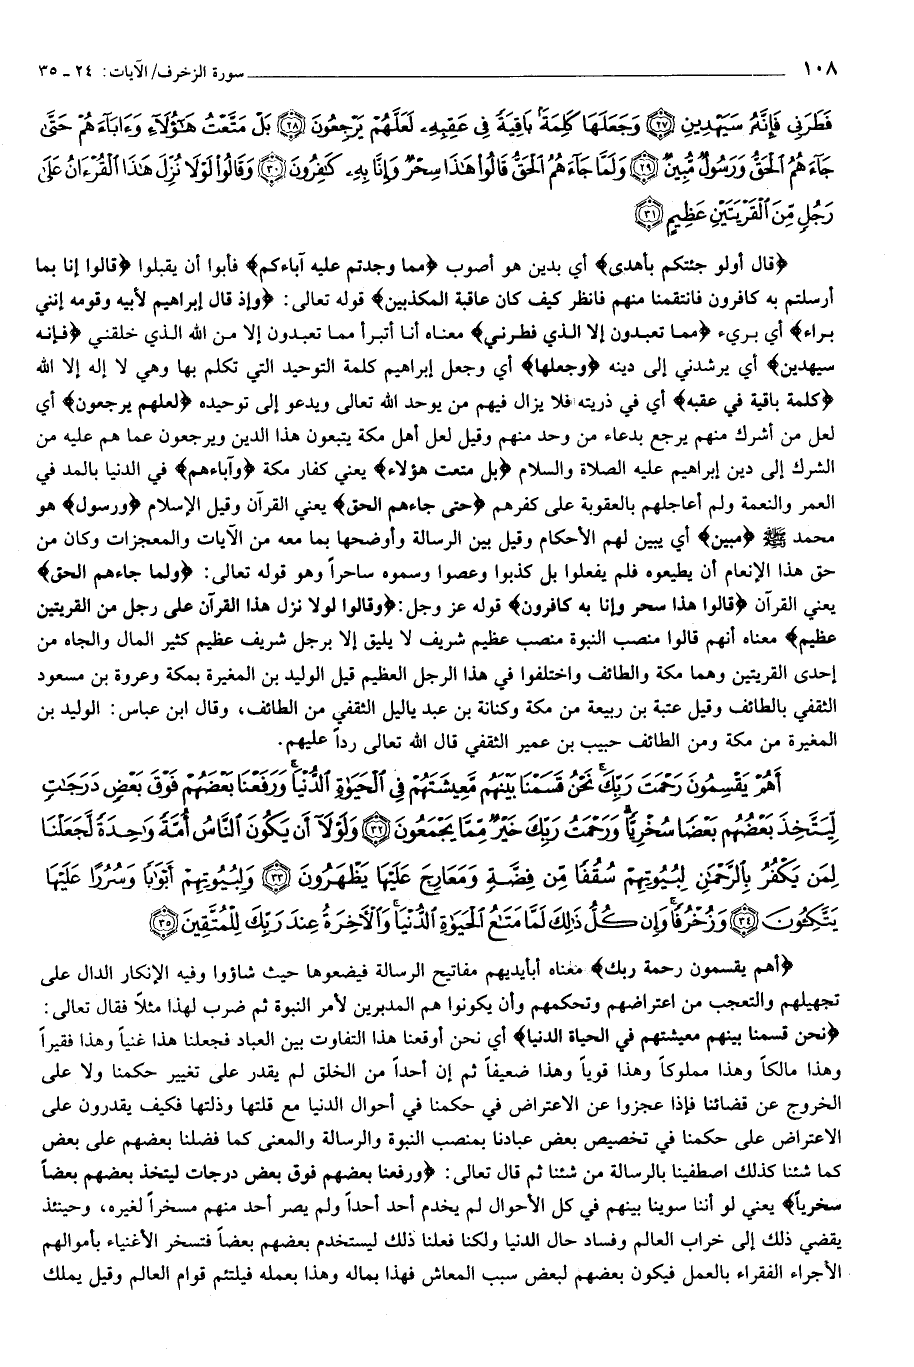 ١٠٨ ـــــــــــــــــــــــــــــــــــــــــــــــــــــــــــــــــ سورة الزخرف/ الآيات: ٢٤ ـ ٣٥
فَطَرَنِي فَإِنَّهُ سَيَهْدِينِ ﴿٢٧﴾ وَجَعَلَهَا كَلِمَةً بَاقِيَةً فِي عَقِبِهِ لَعَلَّهُمْ يَرْجِعُونَ ﴿٢٨﴾ بَلْ مَتَّعْتُ هَٰؤُلَاءِ وَءَابَاءَهُمْ حَتَّىٰ
جَاءَهُمُ الْحَقُّ وَرَسُولٌ مُّبِينٌ ﴿٢٩﴾ وَلَمَّا جَاءَهُمُ الْحَقُّ قَالُوا هَٰذَا سِحْرٌ وَإِنَّا بِهِ كَٰفِرُونَ ﴿٣٠﴾ وَقَالُوا لَوْلَا نُزِّلَ هَٰذَا الْقُرْءَانُ عَلَىٰ
رَجُلٍ مِّنَ الْقَرْيَتَيْنِ عَظِيمٍ ﴿٣١﴾
﴿قال أولو جئتكم بأهدى﴾ أي بدين هو أصوب ﴿مما وجدتم عليه آباءكم﴾ فأبوا أن يقبلوا ﴿قالوا إنا بما
أرسلتم به كافرون فانتقمنا منهم فانظر كيف كان عاقبة المكذبين﴾ قوله تعالى: ﴿وإذ قال إبراهيم لأبيه وقومه إنني
براء﴾ أي بريء ﴿مما تعبدون إلا الذي فطرني﴾ معناه أنا أتبرأ مما تعبدون إلا من الله الذي خلقني ﴿فإنه
سيهدين﴾ أي يرشدني إلى دينه ﴿وجعلها﴾ أي وجعل إبراهيم كلمة التوحيد التي تكلم بها وهي لا إله إلا الله
﴿كلمة باقية في عقبه﴾ أي في ذريته فلا يزال فيهم من يوحد الله تعالى ويدعو إلى توحيده ﴿لعلهم يرجعون﴾ أي
لعل من أشرك منهم يرجع بدعاء من وحد منهم وقيل لعل أهل مكة يتبعون هذا الدين ويرجعون عما هم عليه من
الشرك إلى دين إبراهيم عليه الصلاة والسلام ﴿بل متعت هؤلاء﴾ يعني كفار مكة ﴿وآباءهم﴾ في الدنيا بالمد في
العمر والنعمة ولم أعاجلهم بالعقوبة على كفرهم ﴿حتى جاءهم الحق﴾ يعني القرآن وقيل الإسلام ﴿ورسول﴾ هو
محمد ﷺ ﴿مبين﴾ أي يبين لهم الأحكام وقيل بين الرسالة وأوضحها بما معه من الآيات والمعجزات وكان من
حق هذا الإنعام أن يطيعوه فلم يفعلوا بل كذبوا وعصوا وسموه ساحراً وهو قوله تعالى: ﴿ولما جاءهم الحق﴾
يعني القرآن ﴿قالوا هذا سحر وإنا به كافرون﴾ قوله عز وجل: ﴿وقالوا لولا نزل هذا القرآن على رجل من القريتين
عظيم﴾ معناه أنهم قالوا منصب النبوة منصب عظيم شريف لا يليق إلا برجل شريف عظيم كثير المال والجاه من
إحدى القريتين وهما مكة والطائف واختلفوا في هذا الرجل العظيم قيل الوليد بن المغيرة بمكة وعروة بن مسعود
الثقفي بالطائف وقيل عتبة بن ربيعة من مكة وكنانة بن عبد ياليل الثقفي من الطائف، وقال ابن عباس: الوليد بن
المغيرة من مكة ومن الطائف حبيب بن عمير الثقفي قال الله تعالى رداً عليهم.
أَهُمْ يَقْسِمُونَ رَحْمَتَ رَبِّكَ نَحْنُ قَسَمْنَا بَيْنَهُم مَّعِيشَتَهُمْ فِي الْحَيَوٰةِ الدُّنْيَا وَرَفَعْنَا بَعْضَهُمْ فَوْقَ بَعْضٍ دَرَجَٰتٍ
لِّيَتَّخِذَ بَعْضُهُم بَعْضًا سُخْرِيًّا وَرَحْمَتُ رَبِّكَ خَيْرٌ مِّمَّا يَجْمَعُونَ ﴿٣٢﴾ وَلَوْلَا أَن يَكُونَ النَّاسُ أُمَّةً وَٰحِدَةً لَّجَعَلْنَا
لِمَن يَكْفُرُ بِالرَّحْمَٰنِ لِبُيُوتِهِمْ سُقُفًا مِّن فِضَّةٍ وَمَعَارِجَ عَلَيْهَا يَظْهَرُونَ ﴿٣٣﴾ وَلِبُيُوتِهِمْ أَبْوَٰبًا وَسُرُرًا عَلَيْهَا
يَتَّكِئُونَ ﴿٣٤﴾ وَزُخْرُفًا وَإِن كُلُّ ذَٰلِكَ لَمَّا مَتَٰعُ الْحَيَوٰةِ الدُّنْيَا وَالْآخِرَةُ عِندَ رَبِّكَ لِلْمُتَّقِينَ ﴿٣٥﴾
﴿أهم يقسمون رحمة ربك﴾ معناه أبأيديهم مفاتيح الرسالة فيضعوها حيث شاؤوا وفيه الإنكار الدال على
تجهيلهم والتعجب من اعتراضهم وتحكمهم وأن يكونوا هم المدبرين لأمر النبوة ثم ضرب لهذا مثلاً فقال تعالى:
﴿نحن قسمنا بينهم معيشتهم في الحياة الدنيا﴾ أي نحن أوقعنا هذا التفاوت بين العباد فجعلنا هذا غنياً وهذا فقيراً
وهذا مالكاً وهذا مملوكاً وهذا قوياً وهذا ضعيفاً ثم إن أحداً من الخلق لم يقدر على تغيير حكمنا ولا على
الخروج عن قضائنا فإذا عجزوا عن الاعتراض في حكمنا في أحوال الدنيا مع قلتها وذلتها فكيف يقدرون على
الاعتراض على حكمنا في تخصيص بعض عبادنا بمنصب النبوة والرسالة والمعنى كما فضلنا بعضهم على بعض
كما شئنا كذلك اصطفينا بالرسالة من شئنا ثم قال تعالى: ﴿ورفعنا بعضهم فوق بعض درجات ليتخذ بعضهم بعضاً
سخرياً﴾ يعني لو أننا سوينا بينهم في كل الأحوال لم يخدم أحد أحداً ولم يصر أحد منهم مسخراً لغيره، وحينئذ
يقضي ذلك إلى خراب العالم وفساد حال الدنيا ولكنا فعلنا ذلك ليستخدم بعضهم بعضاً فتسخر الأغنياء بأموالهم
الأجراء الفقراء بالعمل فيكون بعضهم لبعض سبب المعاش فهذا بماله وهذا بعمله فيلتئم قوام العالم وقيل يملك